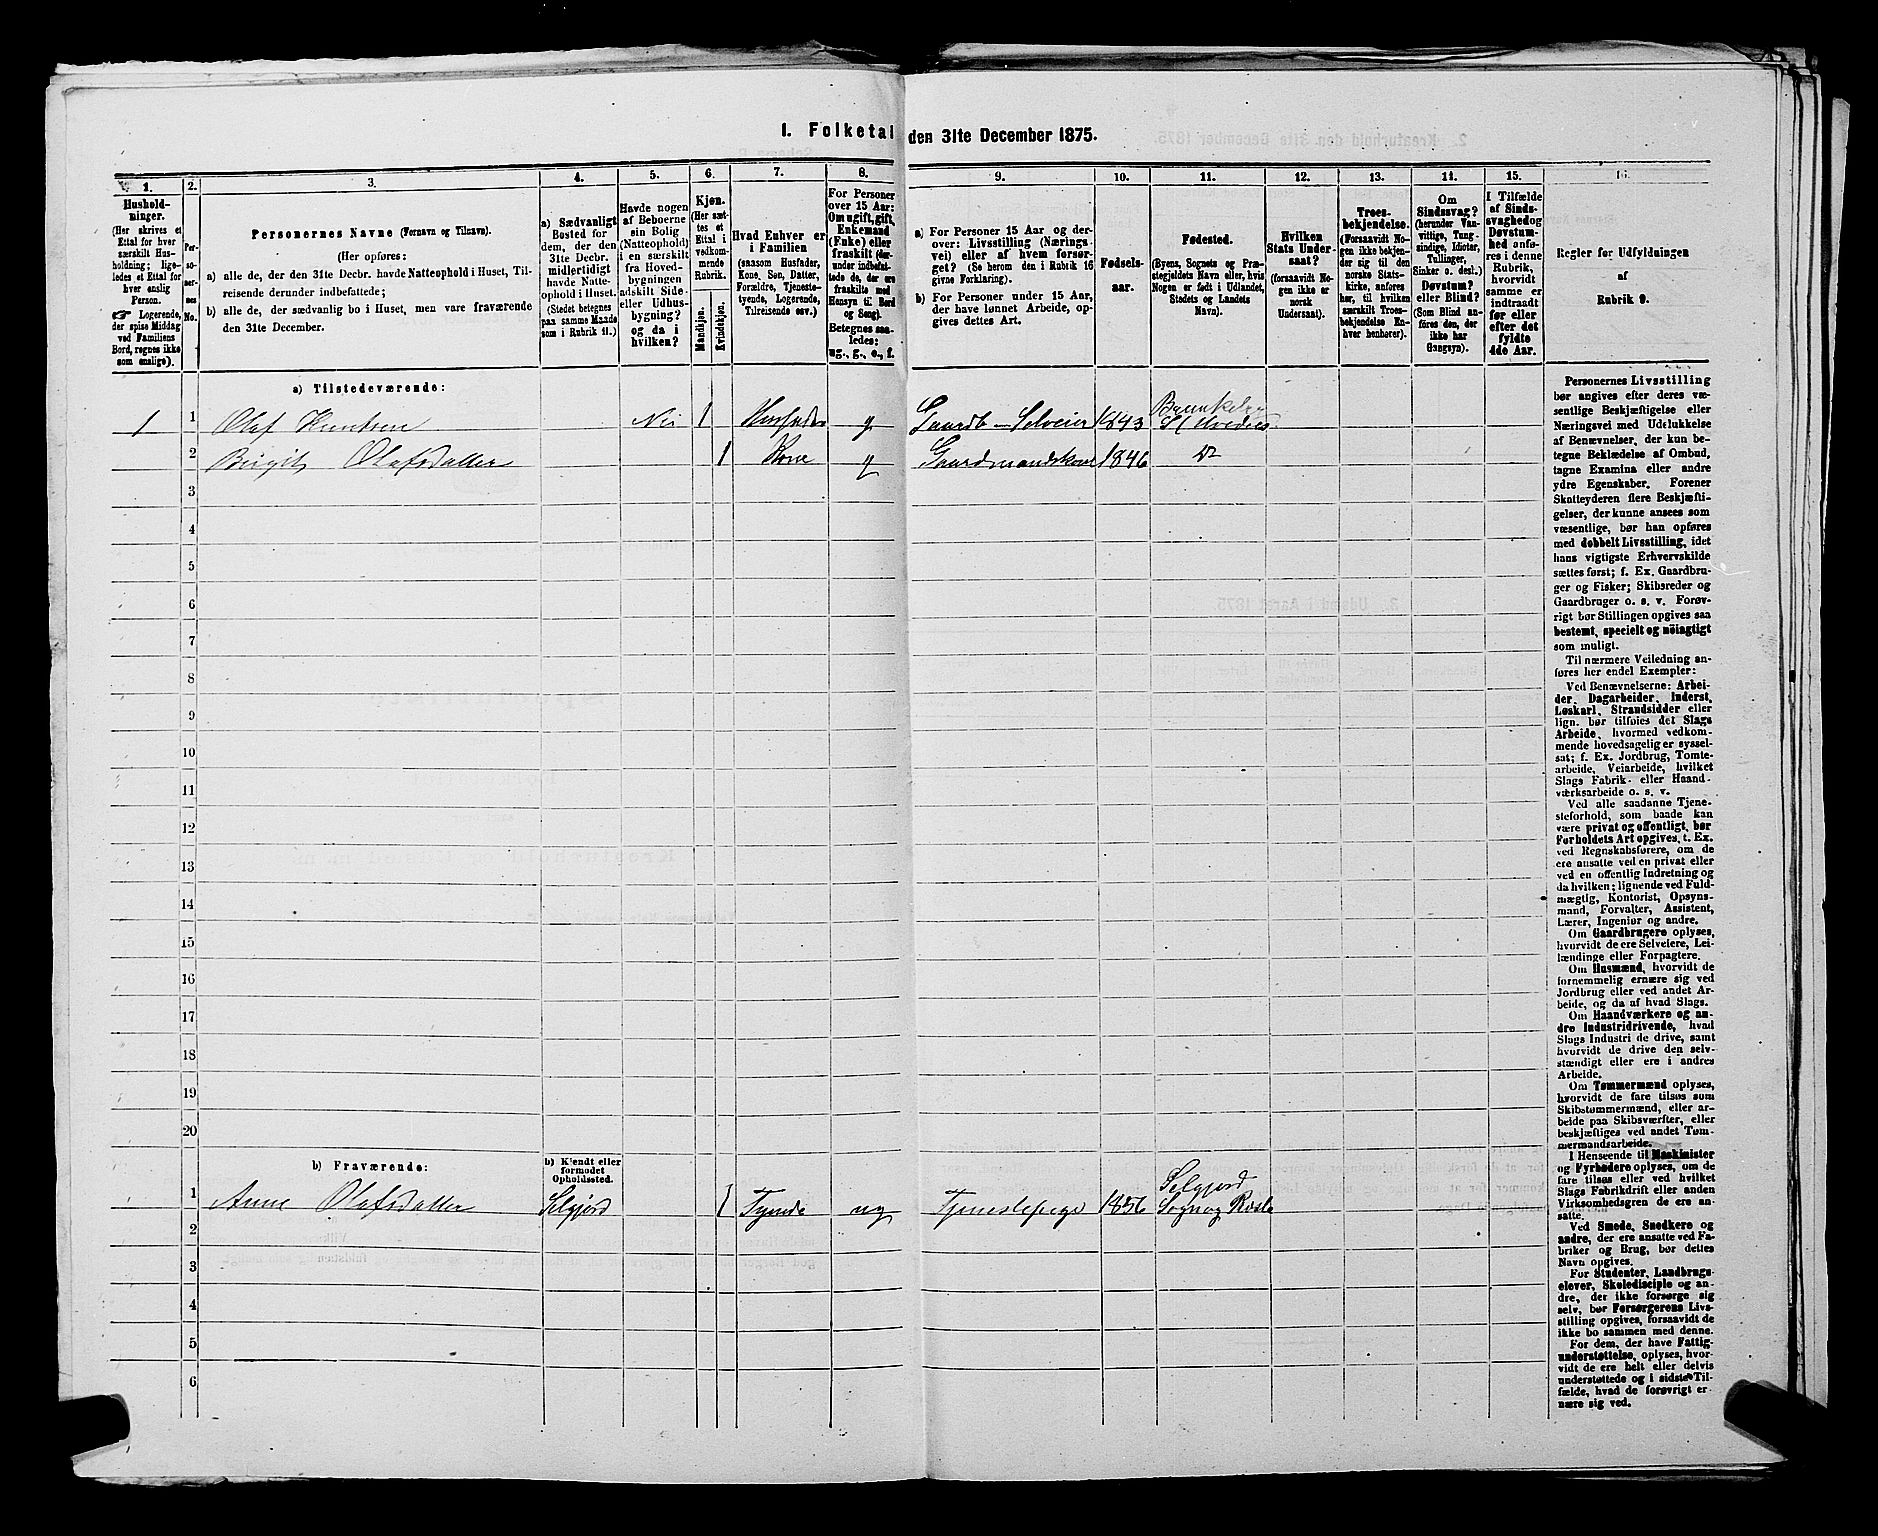 1. Folketal den 31te December 1875.
1.
2.
3.
4.
5.
6.
7.
8.
9.
10.
11.
12.
13.
14.
15.
16.
Hushold-
ninger.
(Her skrives et
Ettal for hver
særskilt Hus-
holdning; lige-
ledes et Ettal for
hver enslig
Person.
☞ Logerende,
der spise Middag
ved Familiens
Bord, regnes ikke
som enslige).
Per-
so-
ner-
nes
No.
Personernes Navne (Fornavn og Tilnavn).
(Her opføres:
a) alle de, der den 31te Decbr. havde Natteophold i Huset, Til-
reisende derunder indbefattede;
b) alle de, der sædvanlig bo i Huset, men vare fraværende
den 31te December.
a) Sædvanligt
Bosted for
dem, der den
31te Decbr.
midlertidigt
havde Natte-
ophold i Huset.
(Stedet betegnes
paa samme Maade
som i Rubrik 11.)
Havde nogen
af Beboerne
sin Bolig
(Natteophold)
i en særskilt
fra Hoved-
bygningen
adskilt Side-
eller Udhus-
bygning?
og da i
hvilken?
Kjøn.
(Her sæt-
tes et
Ettal i
vedkom-
mende
Rubrik.
Mandkjøn.
Kvindekjøn.
Hvad Enhver er
i Familien
(saasom Husfader,
Kone, Søn, Datter,
Forældre, Tjeneste-
tyende, Logerende,
Tilreisende osv.)
For Personer
over 15 Aar:
Om ugift, gift,
Enkemand
(Enke) eller
fraskilt (der-
under indbefat-
tede de, der ere
fraskilte med
Hensyn til Bord
og Seng).
Betegnes saa-
ledes:
ug., g., e., f.
a) For Personer 15 Aar og der-
over: Livsstilling (Nærings-
vei) eller af hvem forsør-
get? (Se herom den i Rubrik 16
givne Forklaring).
b) For Personer under 15 Aar,
der have lønnet Arbeide, op-
gives dettes Art.
Fødsels-
aar.
Fødested.
(Byens, Sognets og Præ-
stegjeldets Navn eller, hvis
Nogen er født i Udlandet,
Stedets og Landets
Navn).
Hvilken
Stats Under-
saat?
(forsaavidt No-
gen ikke er
norsk
Undersaat).
Troes-
bekjendelse.
(Forsaavidt No-
gen ikke bekjen-
der sig til den
norske Stats-
kirke, anføres
her, til hvilken
særskilt Troes-
bekjendelse En-
hver henhører).
Om
Sindssvag?
(herunder Van-
vittige, Tung-
sindige, Idioter,
Tullinger,
Sinker o. desl.).
Døvstum?
eller Blind?
(Som Blind an-
føres den, der
ikke har
Gangsyn).
I Tilfælde
af Sinds-
svaghed og
Døvstum-
hed anfø-
res i denne
Rubrik,
hvorvidt
samme er
indtraadt
før eller
efter det
fyldte
4de Aar.
Regler for Udfyldningen
af
Rubrik 9.
a) Tilstedeværende:
1 1 Olaf Knutsen Nei 1 Husfader g Gaardb Selveier 1843
2 Birgit Olafsdatter 1 Kone g Gaardmandskone 1846 Do
3
4
5
6
7
8
9
10
11
12
13
14
15
16
17
18
19
20
b) Fraværende:
b) Kjendt eller
formodet
Opholdssted.
Selgjord
1 Anne Olafsdatter Selgjord 1 Tyende ug Tjenestepige 1856 Sogn og
2
3
4
5
6
Personernes Livsstilling
bør angives efter deres væ-
sentlige Beskjæftigelse eller
Næringsvei med Udelukkelse
af Benævnelser, der kun be-
tegne Beklædelse af Ombud,
tagne Examina eller andre
ydre Egenskaber. Forener
Skatteyderen flere Beskjæfti-
gelser, der kunne ansees som
væsentlige, bør han opføres
med dobbelt Livsstilling, idet
hans vigtigste Erhvervskilde
sættes først; f. Ex. Gaardbru-
ger og Fisker; Skibsreder og
Gaardbruger o. s. v. Forøv-
rigt bør Stillingen opgives saa
bestemt, specielt og nöiagtigt
som muligt.
Til nærmere Veiledning an-
føres her endel Exempler:
Ved Benævnelserne: Arbei-
der, Dagarbeider, Inderst,
Løskarl, Strandsidder eller
lign. bør tilføies det Slags
Arbeide, hvormed vedkom-
mende hovedsagelig er syssel-
sat; f. Ex. Jordbrug, Tomte-
arbeide, Veiarbeide, hvilket
Slags Fabrik- eller Haand-
værksarbeide o. s. v.
Ved alle saadanne Tjene-
steforhold, som baade kan
være privat og offentligt, bør
Forholdets Art opgives, t. Ex.
ved Regnskabsførere, om de
ere ansatte ved en privat eller
ved en offentlig Indretning og
da hvilken; lignende ved Fuld-
mægtig, Kontorist, Opsyns-
mand, Forvalter, Assistent,
Lærer, Ingeniør og andre.
Om Gaardbrugere oplyses,
hvorvidt de ere Selveiere, Lei-
lændinge eller Forpagtere.
Om Husmænd, hvorvidt de
fornemmelig ernære sig ved
Jordbrug eller ved andet Ar-
beide, og da af hvad Slags.
Om Haandværkere og an-
dre Industridrivende, hvad
Slags Industri de drive, samt
hvorvidt de drive den selv-
stændigt eller ere i andres
Arbeide.
Om Tømmermænd oplyses,
hvorvidt de fare tilsøs som
Skibstømmermænd, eller ar-
beide paa Skibsværfter, eller
beskjæftiges ved andet Tøm-
mermandsarbeide.
I Henseende til Maskinister
og Fyrbødere oplyses, om de
fare tilsøs eller ved hvilket
Slags Fabrikdrift eller anden
Virksomhedsgren de ere an-
satte.
Ved Smede, Snedkere og
andre, der ere ansatte ved Fa-
briker og Brug, bør dettes
Navn opgives.
For Studenter, Landbrugs-
elever, Skoledisciple og an-
dre, der ikke forsørge sig
selv, bør Forsørgerens Livs-
stilling opgives, forsaavidt de
ikke bo sammen med denne.
For dem, der have Fattig-
understøttelse, oplyses, hvor-
vidt de ere helt eller delvis
understøttede og i sidste Til-
fælde, hvad de forøvrigt er-
nære sig ved.